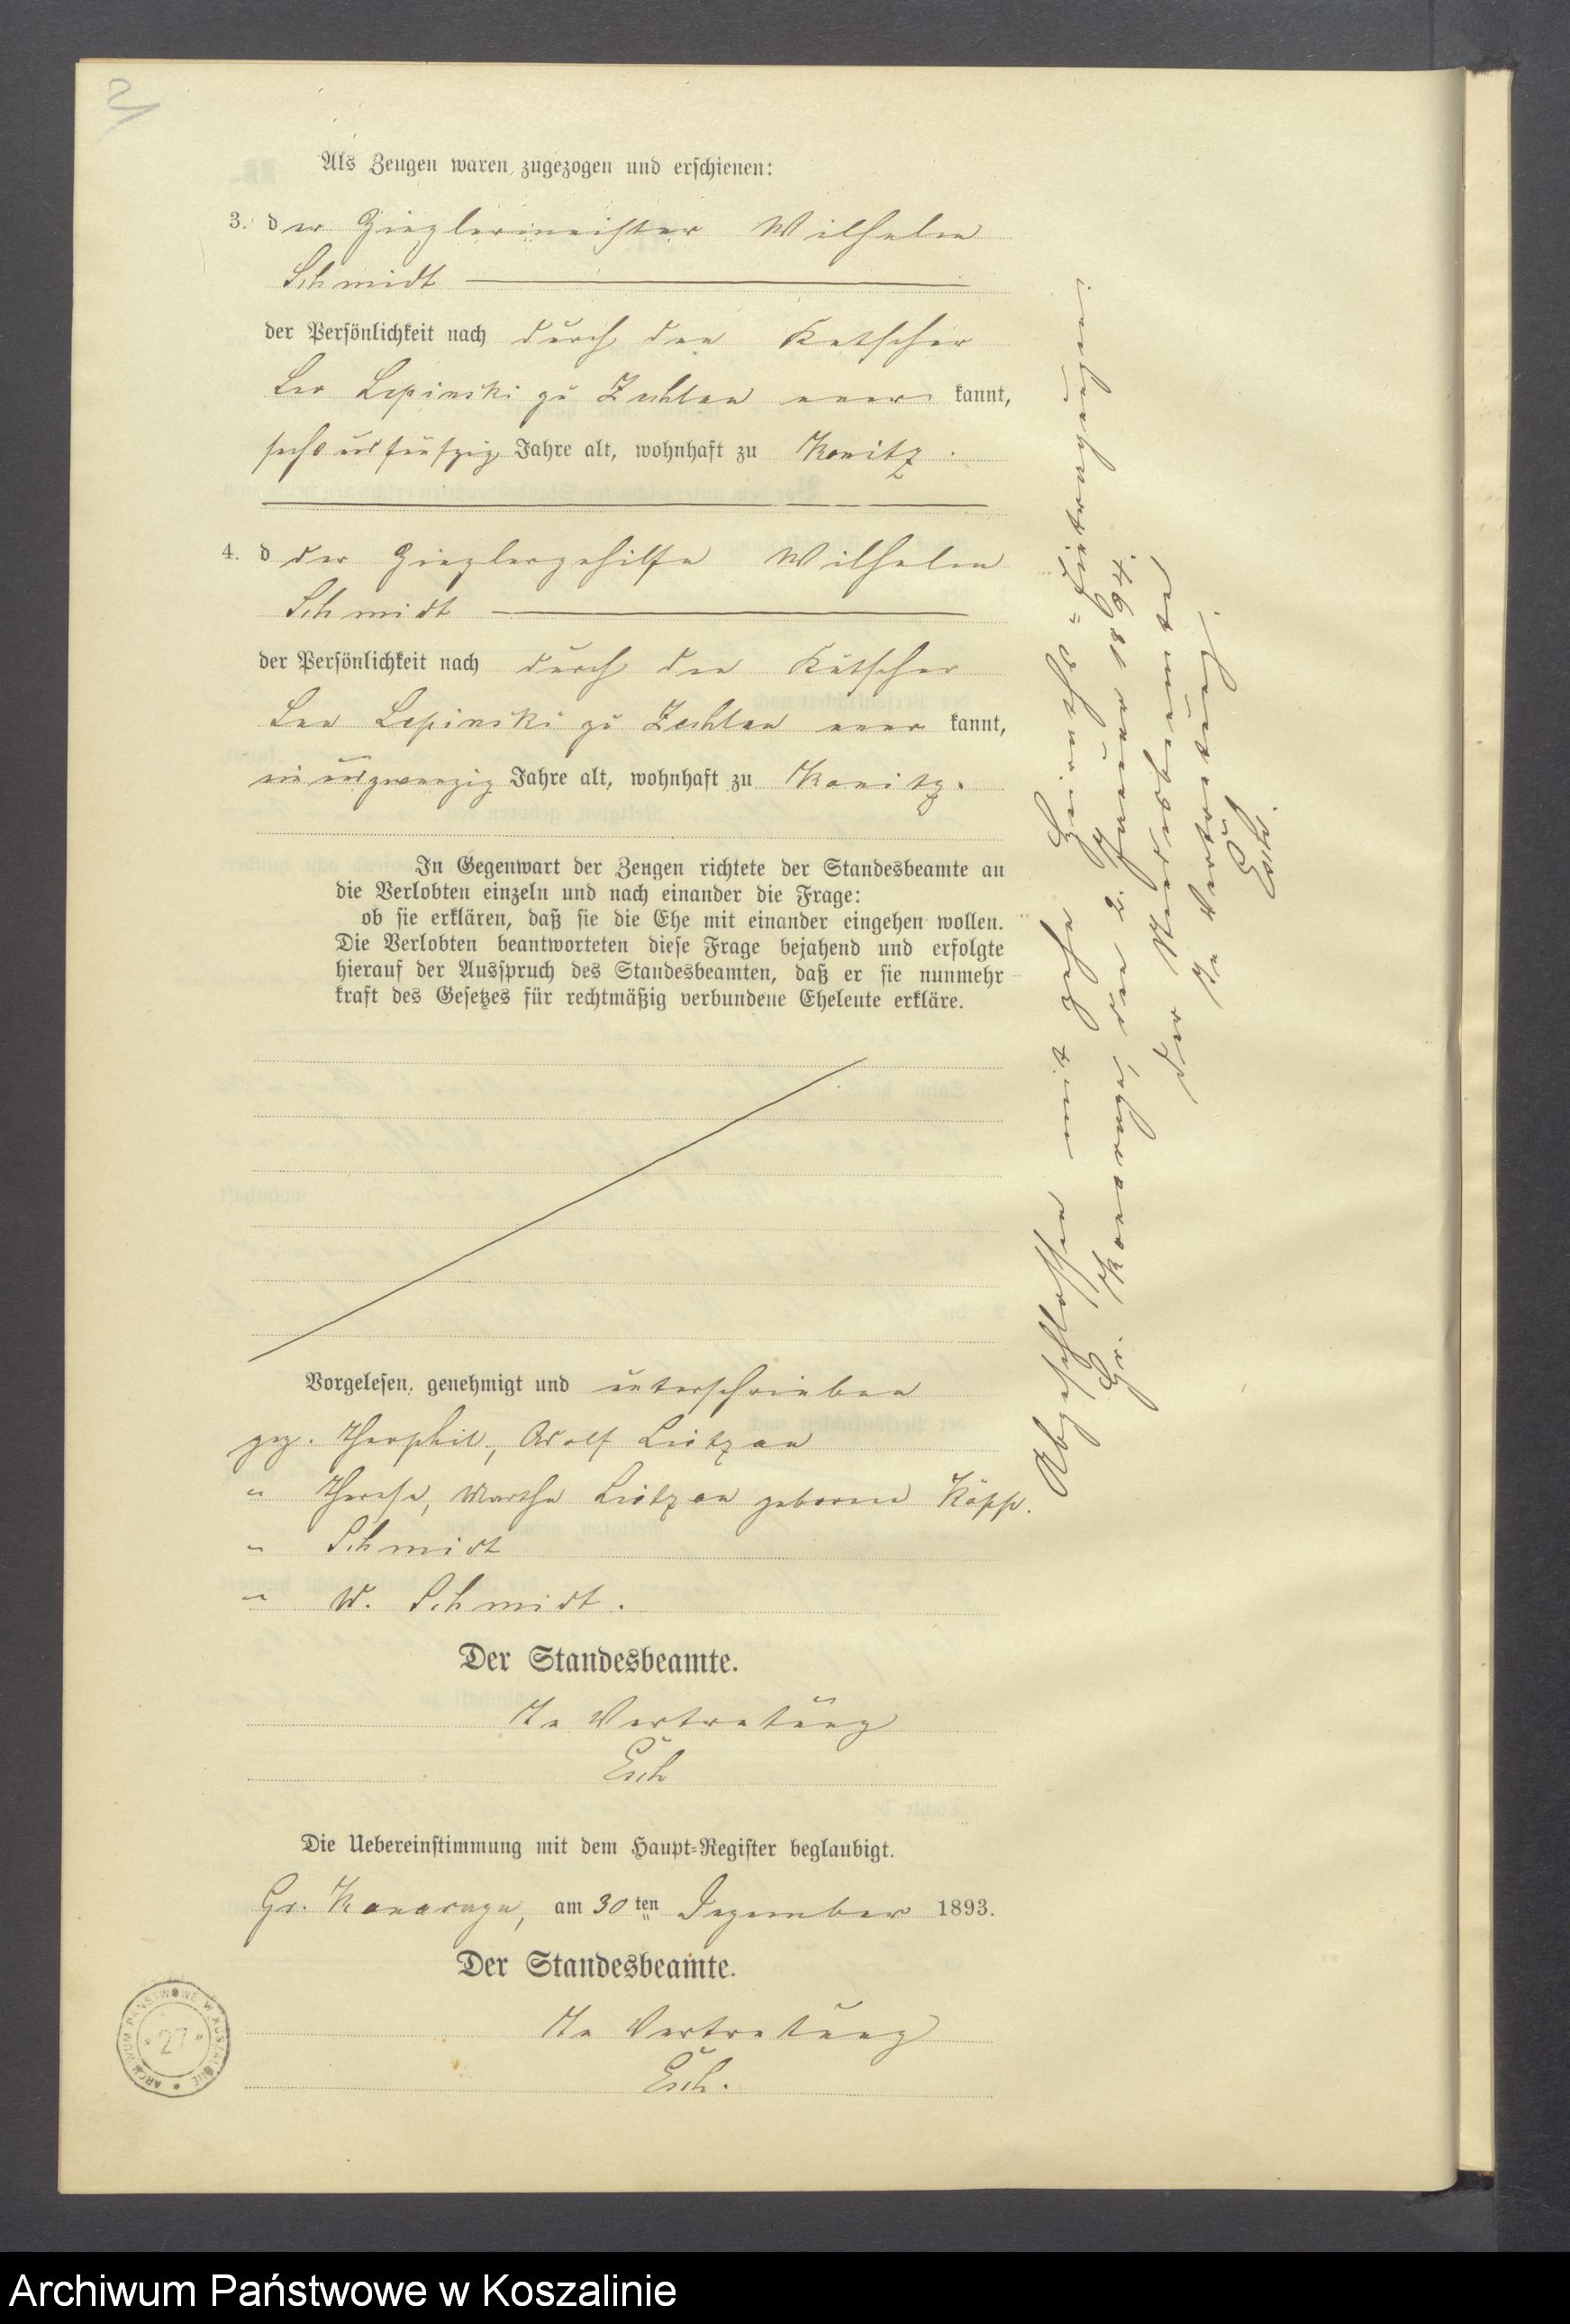 Als Zeugen waren zugezogen und erschienen:
3. der Zieglermeister Wilhelm
Schmidt
der Persönlichkeit nach durch den Kutscher
Leo Lepinski zu Zechlau aner kannt,
sechsundfünfzig Jahre alt, wohnhaft zu Konitz.
4. d der Zieglergehilfe Wilhelm
Schmidt
der Persönlichkeit nach durch den Kutscher
Leo Lepinski zu Zechlau aner kannt,
einundzwanzig Jahre alt, wohnhaft zu Konitz.
In Gegenwart der Zeugen richtete der Standesbeamte an
die Verlobten einzeln und nach einander die Frage:
ob sie erklären, daß sie die Ehe mit einander eingehen wollen.
Die Verlobten beantworteten diese Frage bejahend und erfolgte
hierauf der Ausspruch des Standesbeamten, daß er sie nunmehr
kraft des Gesetzes für rechtmäßig verbundene Eheleute erkläre.
Vorgelesen, genehmigt und unterschrieben
gez. Theophil, Adolf Lützow
" Therese, Martha Lützow geborene Köpp.
" Schmidt
" W. Schmidt.
Der Standesbeamte.
In Vertretung
Esch
Die Uebereinstimmung mit dem Haupt-Register beglaubigt.
Gr. Konarczyn, am 30ten Dezember 1893.
Der Standesbeamte.
In Vertretung
Esch.
Abgeschlossen mit zehn Heiraths-Eintragungen.
Gr. Konarczyn, den 2. Januar 1894.
Der Standesbeamte
In Vertretung.
Esch.
ARCHIWUM PAŃSTWOWE W KOSZALINIE
* 27 *
Archiwum Państwowe w Koszalinie